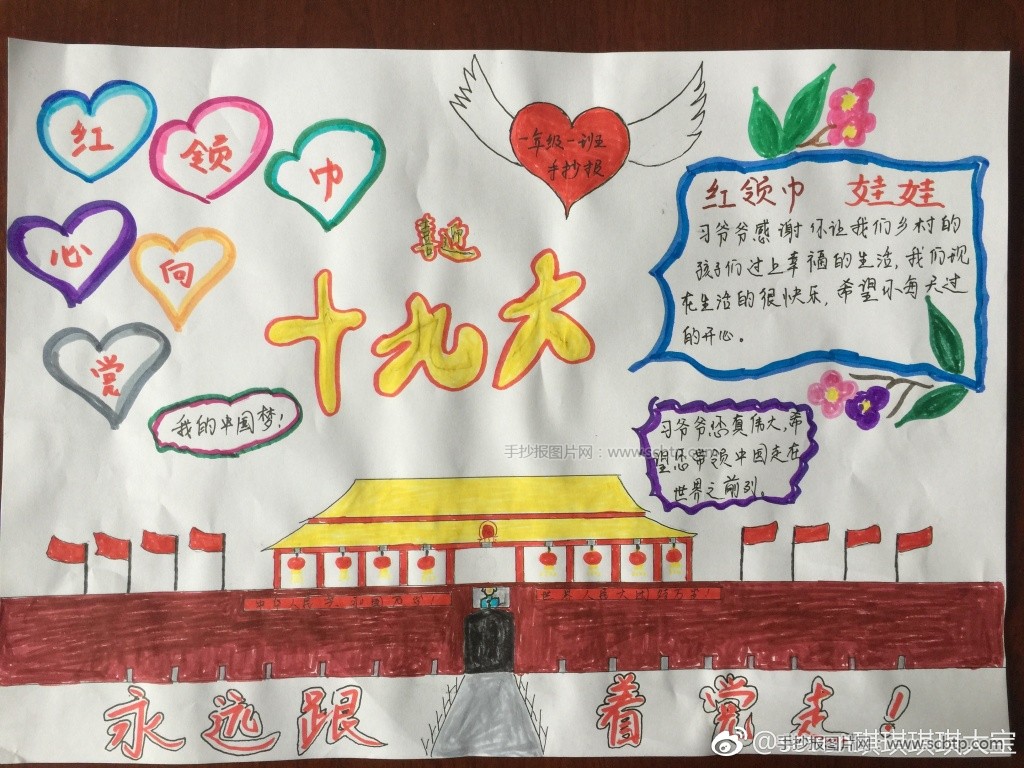 红
领
巾
心
向
党
一年级一班
手抄报
喜迎
十九大
红领巾 娃娃
习爷爷感谢你让我们乡村的
孩子们过上幸福的生活,我们现
在生活的很快乐,希望你每天过
的开心。
我的中国梦!
习爷爷您真伟大,希
望您带领中国走在
世界之前列.
手抄报图片网:www.scbtp.com
中华人民共和国万岁!
世界人民大团结万岁!
永远跟着党走!
手抄报图片网:www.scbtp.com